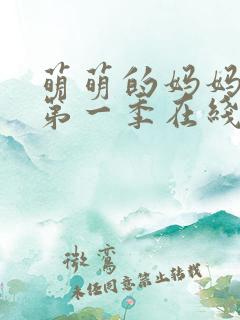 萌萌的妈妈
第一季在线
微鸾
未经同意禁止转载